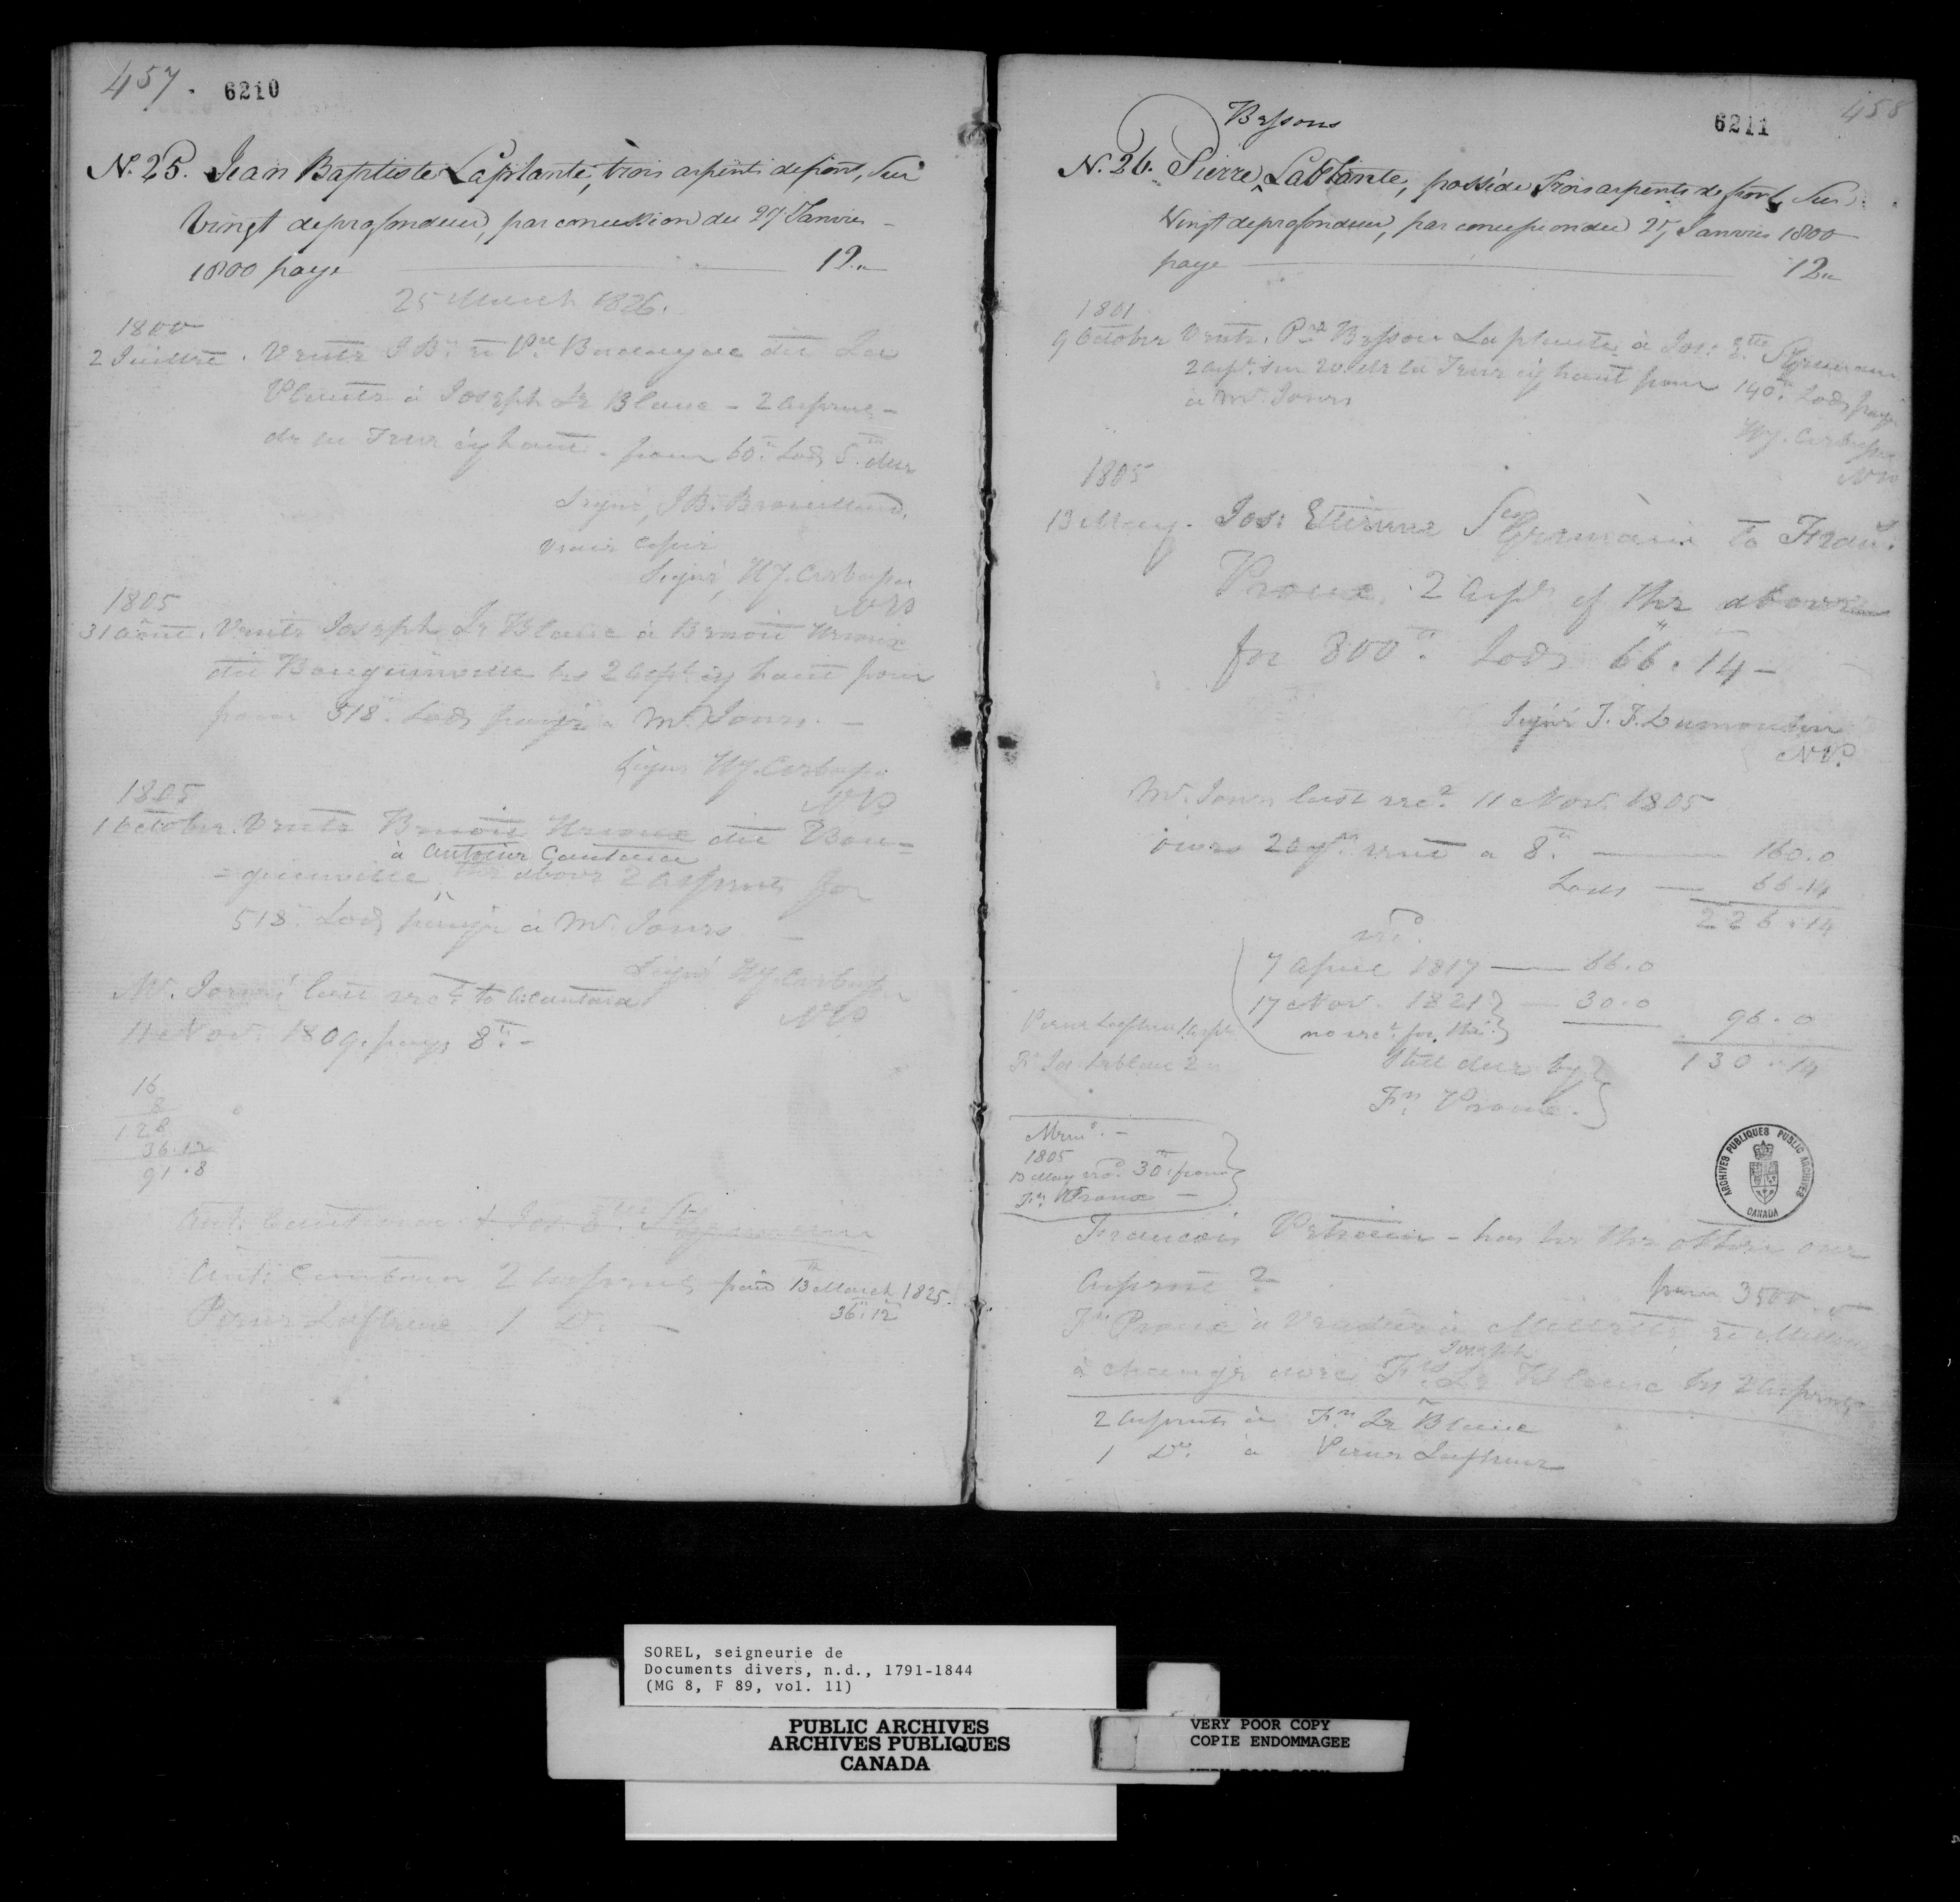 457. 6210
N. 25. Jean Baptiste Laplante, trois arpents de front, Sur
vingt de profondeur, par concession du 27 Janvier
1800 paye 12
25 March 1826.
1800
2 Juillet. Vente J Bte et Pre dit La
Plante à Joseph Le Blanc - 2 arpents -
de la Terre cy haut. pour 60 Lods 5 dus
Signé, J B. Brouillard.
vraie Copie
Signé,
NP
1805
31 aout. Vente Joseph Le Blanc à Benoit
dit Bouguinville les 2 arpt cy haut pour
pour 518 Lods payé a Mr. Jones. -
Signé
NP
1805
1 October. Vente Benoit dit Bou=
à Antoine
=guinville the above 2 arpents for
518. Lods payé à Mr. Jones -
Signé
NP
Mr. Jones' last rect. to
11 Nov. 1809. pays 8 -
16
8
128
36.12
91.8
Ant. & Jos. E. St
Ant. 2 arpents paid 13th March 1825.
36.12
Pierre 1 Do. -
458
6211
Bessons
N. 26. Pierre LaPlante, posséde Trois arpents de front, Sur
Vingt de profondeur, par concession du 27 Janvier 1800
paye 12
1801
9 October Vente. Pre Besson Laplante à Jos: Ette St Germain
2 arpt. sur 20 de la Terre cy haut pour 140. Lods payé
à Mr. Jones
NP
1805
13 May. Jos: Ettienne St Germain to
Proux 2 arpts of the above
for 800. Lods 66.14 -
Signé
NP.
Mr. Jones last rect. 11 Nov. 1805
owes 20 yrs. rent a 8. 160.0
Lods 66.14
226.14
recd.
7 April 1817 66.0
17 Nov. 1821 30.0
no rect. for this 96.0
130.14
Still due by
Frs. Proux.
Pierre 1 arpt
F. Jos. Leblanc 2
Memo. -
1805
13 May recd. 30 from
Frs. Proux -
Francois - has he the other one
Arpent ?
pour 3500.
Frs Proux a Vendu à
Joseph
à changé avec Frs. Le Blanc les 2 arpents
2 arpents à Frs. Le Blanc
1 Do. à Pierre
ARCHIVES PUBLIQUES PUBLIC ARCHIVES
CANADA
SOREL, seigneurie de
Documents divers, n.d., 1791-1844
(MG 8, F 89, vol. 11)
PUBLIC ARCHIVES
ARCHIVES PUBLIQUES
CANADA
VERY POOR COPY
COPIE ENDOMMAGEE
VERY POOR COPY